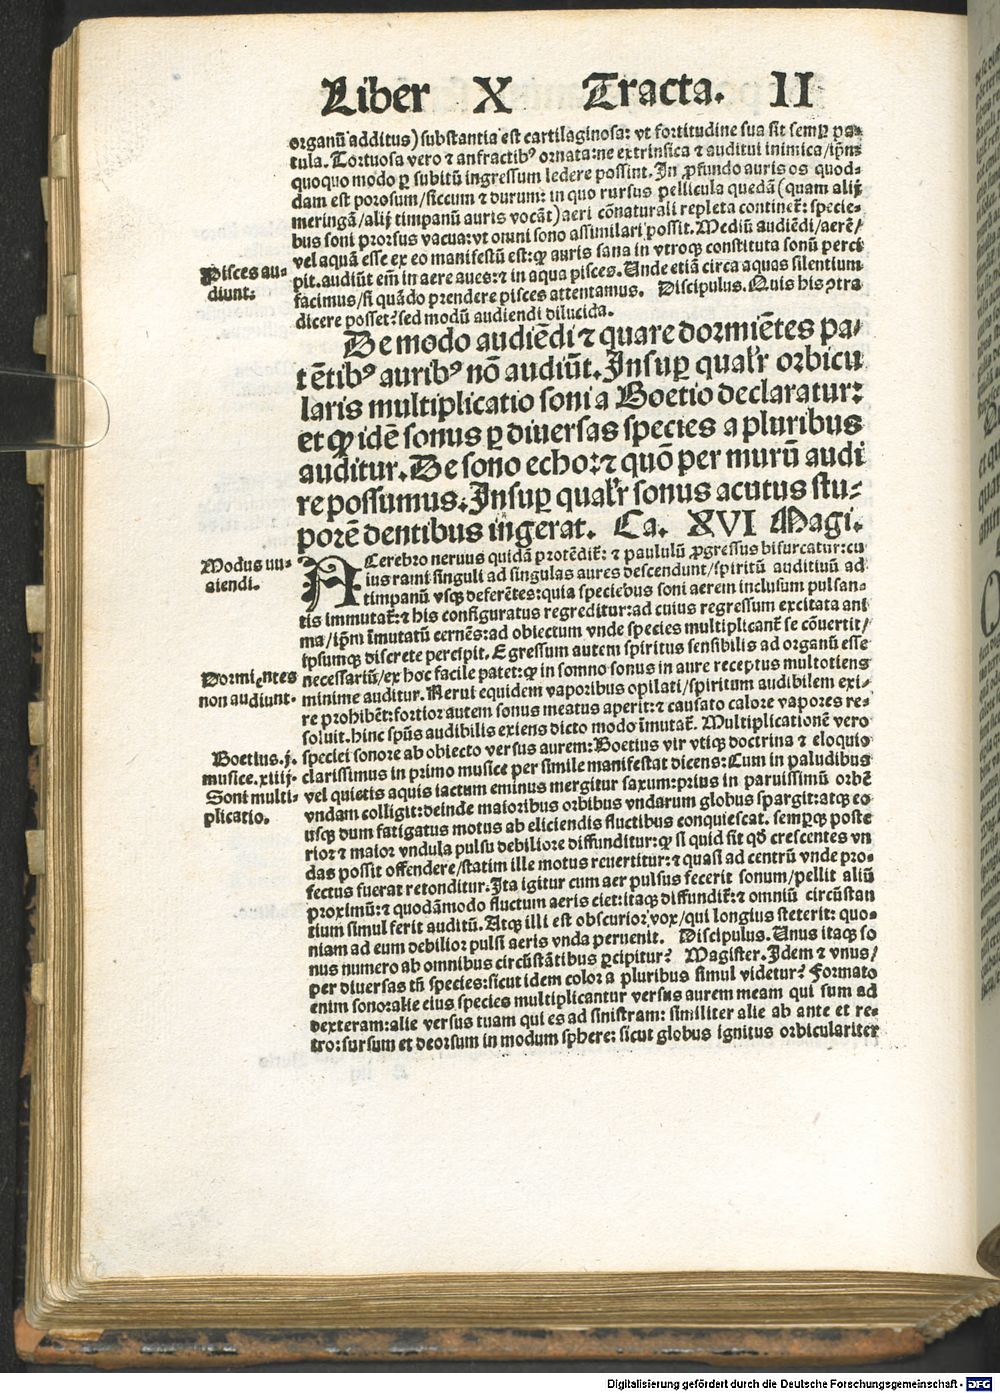 Liber X Tracta. II
organū additus) substantia est cartilaginosa: vt fortitudine sua sit semꝑ pa⸗
tula. Tortuosa vero ⁊ anfractibꝰ ornata: ne extrinsica ⁊ auditui inimica/ ip̄m
quoquo modo ꝑ subitū ingressum ledere possint. In ꝓfundo auris os quod⸗
dam est porosum/ siccum ⁊ durum: in quo rursus pellicula quedā (quam alij
meringā/ alij timpanū auris vocāt) aeri cōnaturali repleta continet᷑: specie⸗
bus soni prorsus vacua: vt omni sono assimilari possit. Mediū audiēdi/ aerē/
vel aquā esse ex eo manifestū est: ꝙ auris sana in vtroqꝫ constituta sonū perci
pit. audiūt em̄ in aere aues: ⁊ in aqua pisces. Unde etiā circa aquas silentium
facimus/ si quādo prendere pisces attentamus. Discipulus. Quis his ꝯtra
dicere posset? sed modū audiendi dilucida.
Pisces au⸗
diunt:
De modo audiēdi ⁊ quare dormiētes pa⸗
tētibꝰ auribꝰ nō audiūt. Insuꝑ qualr̄ orbicu
laris multiplicatio soni a Boetio declaratur:
et ꝙ idē sonus ꝑ diuersas species a pluribus
auditur. De sono echo: ⁊ quō per murū audi
re possumus. Insuꝑ qualr̄ sonus acutus stu⸗
porē dentibus ingerat. Ca. XVI Magi.
Modus au⸗
diendi.
A Cerebro neruus quidā protēdit᷑: ⁊ paululū ꝓgressus bifurcatur: cu
ius rami singuli ad singulas aures descendunt/ spiritū auditiuū ad
timpanū vsqꝫ deferētes: quia speciebus soni aerem inclusum pulsan⸗
tis immutat᷑: ⁊ his configuratus regreditur: ad cuius regressum excitata ani
ma/ ip̄m īmutatū cernēs: ad obiectum vnde species multiplicant᷑ se cōuertit/
ipsumqꝫ discrete percipit. Egressum autem spiritus sensibilis ad organū esse
necessariū/ ex hoc facile patet: ꝙ in somno sonus in aure receptus multotiens
minime auditur. Nerui equidem vaporibus opilati/ spiritum audibilem exi⸗
re prohibēt: fortior autem sonus meatus aperit: ⁊ causato calore vapores re⸗
soluit. hinc spūs audibilis exiens dicto modo īmutat᷑. Multiplicationē vero
speciei sonore ab obiecto versus aurem: Boetius vir vtiqꝫ doctrina ⁊ eloquio
clarissimus in primo musice per simile manifestat dicens: Cum in paludibus
vel quietis aquis iactum eminus mergitur saxum: prius in paruissimū orbē
vndam colligit: deinde maioribus orbibus vndarum globus spargit: atqꝫ eo
vsqꝫ dum fatigatus motus ab eliciendis fluctibus conquiescat. semperqꝫ poste
rior ⁊ maior vndula pulsu debiliore diffunditur: ꝙ si quid sit qd̄ crescentes vn
das possit offendere/ statim ille motus reuertitur: ⁊ quasi ad centrū vnde pro⸗
fectus fuerat retonditur. Ita igitur cum aer pulsus fecerit sonum/ pellit aliū
proximū: ⁊ quodāmodo fluctum aeris ciet: itaqꝫ diffundit᷑: ⁊ omniū circūstan
tium simul ferit auditū. Atqꝫ illi est obscurior vox/ qui longius steterit: quo⸗
niam ad eum debilior pulsi aeris vnda peruenit. Discipulus. Unus itaqꝫ so
nus numero ab omnibus circūstātibus ꝑcipitur? Magister. Idem ⁊ vnus/
per diuersas tn̄ species: sicut idem color a pluribus simul videtur? Formato
enim sono: alie eius species multiplicantur versus aurem meam qui sum ad
dexteram: alie versus tuam qui es ad sinistram: similiter alie ab ante et re⸗
tro: sursum et deorsum in modum sphere: sicut globus ignitus orbiculariter
Dormientes
non audiunt.
Boetius. j.
musice. xiiij.
Soni multi⸗
plicatio.
Digitalisierung gefördert durch die Deutsche Forschungsgemeinschaft - DFG